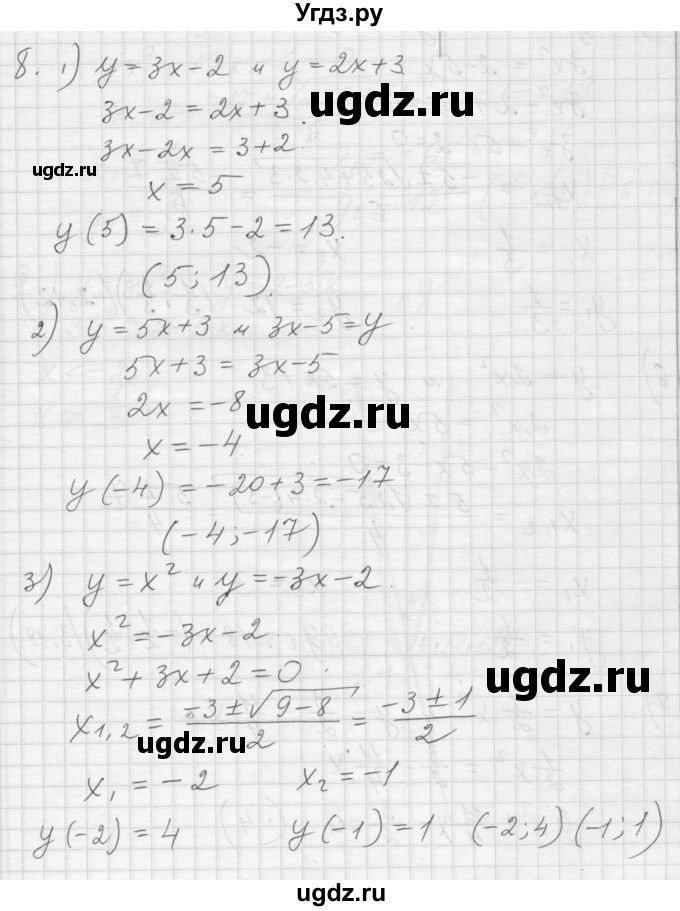 Угдз.ру
8. 1) y = 3x - 2 и y = 2x + 3
3x - 2 = 2x + 3.
ugdz.ru
3x - 2x = 3 + 2.
ugdz.ru
x = 5
y(5) = 3·5 - 2 = 13.
(5; 13).
2) y = 5x + 3 и 3x - 5 = y
5x + 3 = 3x - 5
2x = -8
ugdz.ru
x = -4
y(-4) = -20 + 3 = -17
(-4; -17)
3) y = x² и y = -3x - 2.
x² = -3x - 2.
x² + 3x + 2 = 0.
ugdz.ru
x₁,₂ = (-3 ± √(9 - 8))/2 = (-3 ± 1)/2
ugdz.ru
x₁ = -2 x₂ = -1
y(-2) = 4 y(-1) = 1 (-2; 4) (-1; 1)
ugdz.ru